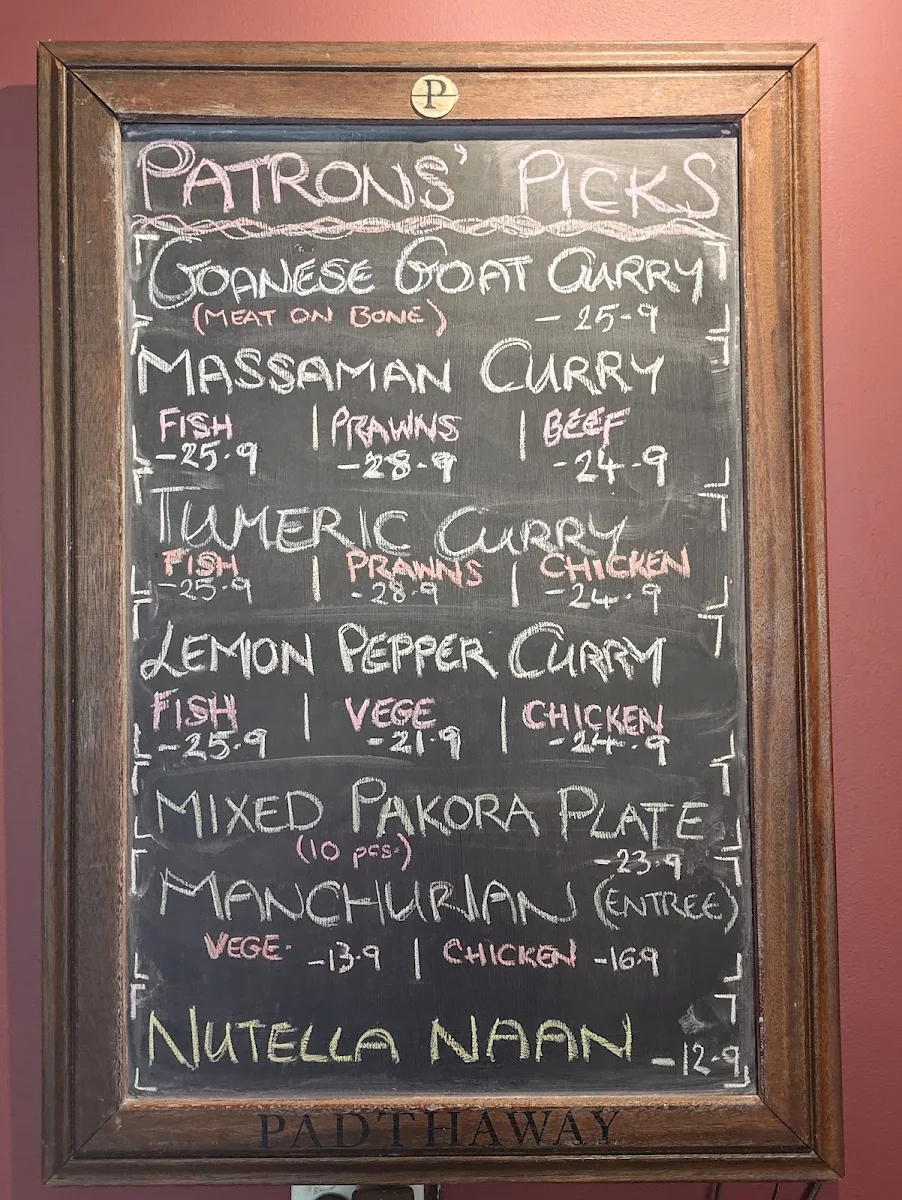 P
PATRONS' PICKS
GOANESE GOAT CURRY
(MEAT ON BONE) - 25-9
MASSAMAN CURRY
FISH | PRAWNS | BEEF
-25.9 -28-9 -24-9
TUMERIC CURRY
FISH | PRAWNS | CHICKEN
-25.9 -28.9 -24.9
LEMON PEPPER CURRY
FISH | VEGE | CHICKEN
-25.9 -21.9 -24.9
MIXED PAKORA PLATE
(10 pcs.) -23.9
MANCHURIAN (ENTREE)
VEGE. -13.9 | CHICKEN -16.9
NUTELLA NAAN -12.9
PADTHAWAY